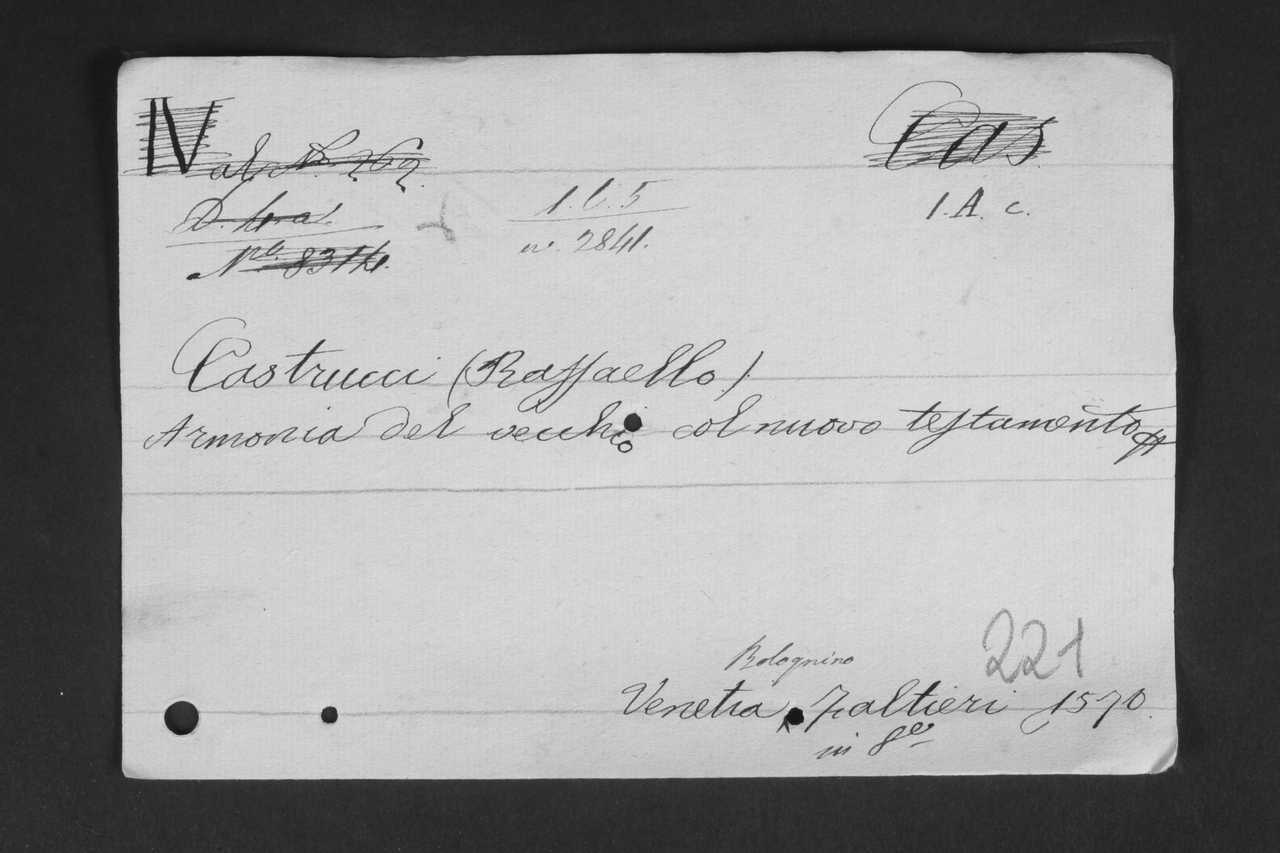 Cas
1. A. c.
1. b. 5
n. 2841.
Castrucci (Raffaello)
Armonia del vecchio col nuovo testamento
221
Bolognino
Venetia, Zaltieri 1570.
in 8vo